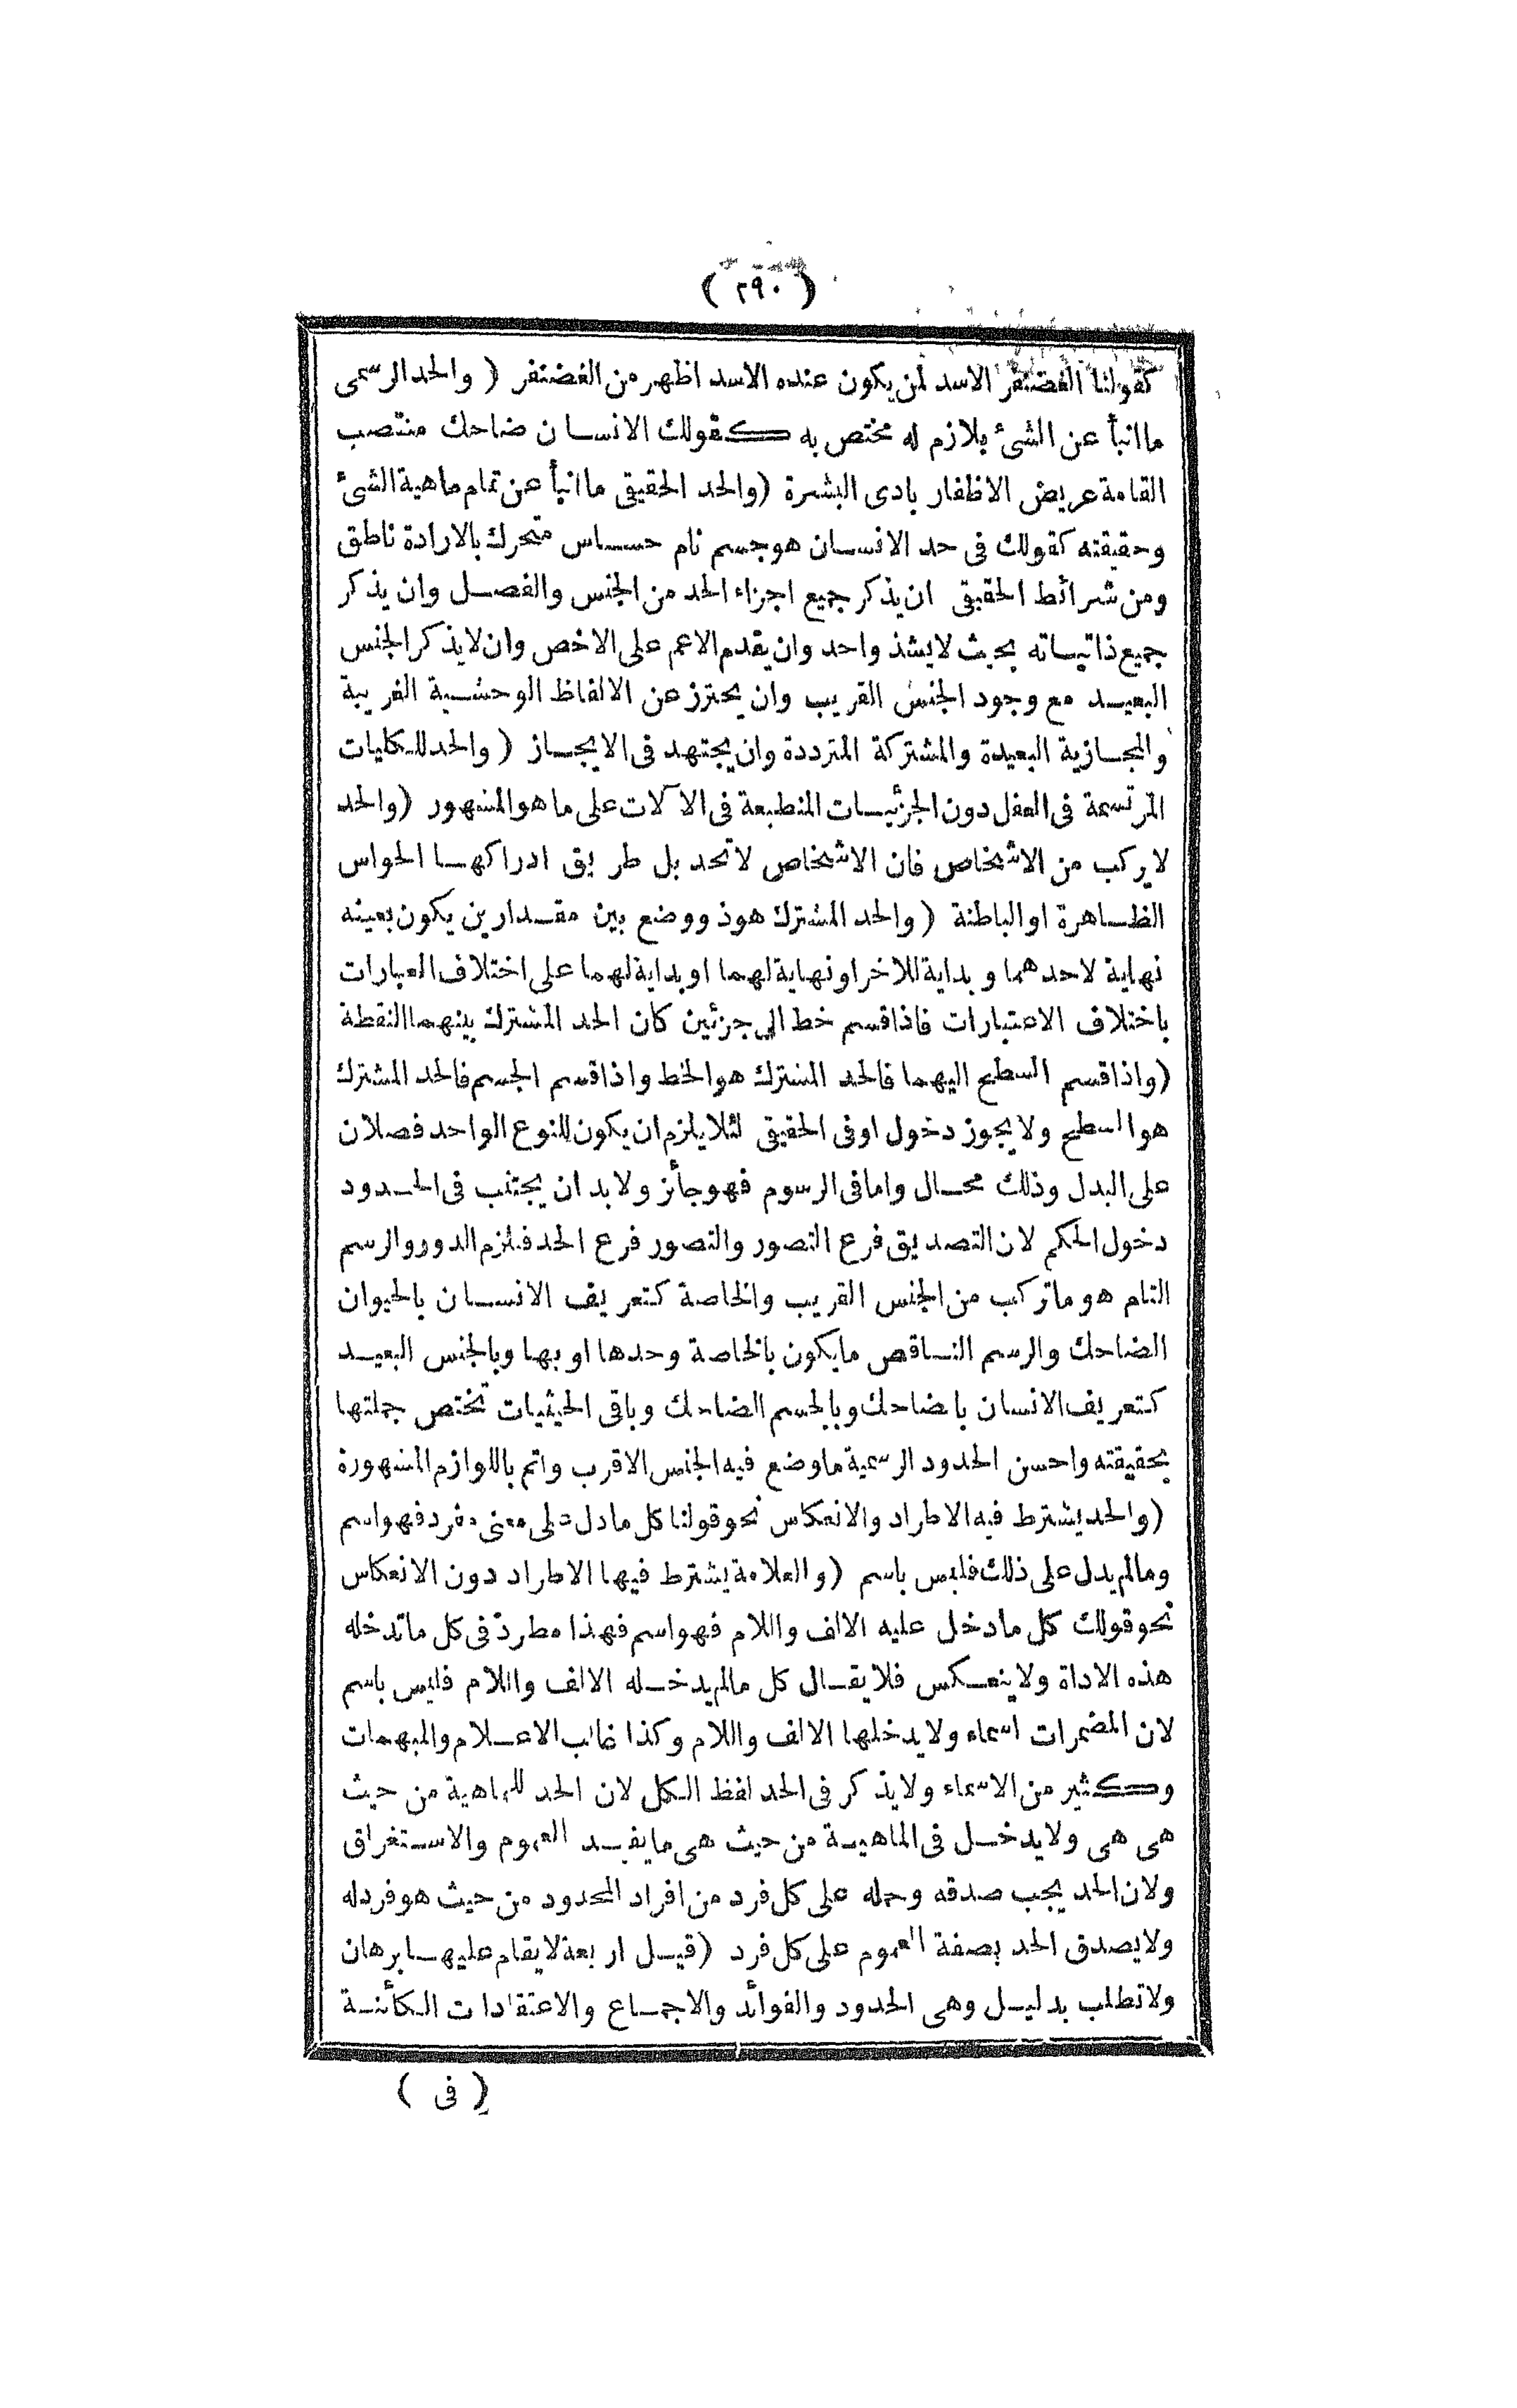 ( ٢٩٠ )
كقولنا الغضنفر الاسد لمن يكون عنده الاسد اظهر من الغضنفر ( والحد الرسمى
ما انبأ عن الشئ بلازم له مختص به كقولك الانسان ضاحك منتصب
القامة عريض الاظفار بادى البشرة ( والحد الحقيقى ما انبأ عن تمام ماهية الشئ
وحقيقته كقولك فى حد الانسان هو جسم نام حساس متحرك بالارادة ناطق
ومن شرائط الحقيقى ان يذكر جميع اجزاء الحد من الجنس والفصل وان يذكر
جميع ذاتياته بحيث لا يشذ واحد وان يقدم الاعم على الاخص وان لا يذكر الجنس
البعيد مع وجود الجنس القريب وان يحترز عن الالفاظ الوحشية الغريبة
والمجازية البعيدة والمشتركة المترددة وان يجتهد فى الايجاز ( والحد للكليات
المرتسمة فى العقل دون الجزئيات المنطبعة فى الآلات على ما هو المشهور ( والحد
لا يركب من الاشخاص فان الاشخاص لا تحد بل طريق ادراكها الحواس
الظاهرة او الباطنة ( والحد المشترك هو ذو وضع بين مقدارين يكون بعينه
نهاية لاحدهما وبداية للاخر او نهاية لهما او بداية لهما على اختلاف العبارات
باختلاف الاعتبارات فاذا قسم خط الى جزئين كان الحد المشترك بينهما النقطة
( واذا قسم السطح اليهما فالحد المشترك هو الخط واذا قسم الجسم فالحد المشترك
هو السطح ولا يجوز دخول او فى الحقيقى لئلا يلزم ان يكون للنوع الواحد فصلان
على البدل وذلك محال واما فى الرسوم فهو جائز ولا بد ان يجتنب فى الحدود
دخول الحكم لان التصديق فرع التصور والتصور فرع الحد فيلزم الدور والرسم
التام هو ما تركب من الجنس القريب والخاصة كتعريف الانسان بالحيوان
الضاحك والرسم الناقص ما يكون بالخاصة وحدها او بها وبالجنس البعيد
كتعريف الانسان بالضاحك وبالجسم الضاحك وباقى الحيثيات تختص جملتها
بحقيقته واحسن الحدود الرسمية ما وضع فيه الجنس الاقرب واتم باللوازم المشهورة
( والحد يشترط فيه الاطراد والانعكاس نحو قولنا كل ما دل على معنى مفرد فهو اسم
وما لم يدل على ذلك فليس باسم ( والعلامة يشترط فيها الاطراد دون الانعكاس
نحو قولك كل ما دخل عليه الالف واللام فهو اسم فهذا مطرد فى كل ما تدخله
هذه الاداة ولا ينعكس فلا يقال كل ما لم يدخله الالف واللام فليس باسم
لان المضمرات اسماء ولا يدخلها الالف واللام وكذا غالب الاعلام والمبهمات
وكثير من الاسماء ولا يذكر فى الحد لفظ الكل لان الحد للماهية من حيث
هى هى ولا يدخل فى الماهية من حيث هى ما يفيد العموم والاستغراق
ولان الحد يجب صدقه وحمله على كل فرد من افراد المحدود من حيث هو فرد له
ولا يصدق الحد بصفة العموم على كل فرد ( قيل اربعة لا يقام عليها برهان
ولا تطلب بدليل وهى الحدود والفوائد والاجماع والاعتقادات الكائنة
( فى )